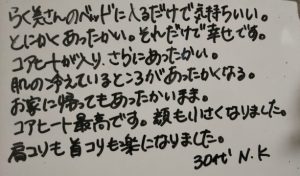 らく美さんのベッドに入るだけで気持ちいい。
とにかくあったかい。それだけで幸せです。
コアヒートが入り、さらにあったかい。
肌の冷えているところがあったかくなる。
お家に帰ってもあったかいまま。
コアヒート最高です。顔も小さくなりました。
肩コリも首コリも楽になりました。
30代 N.K